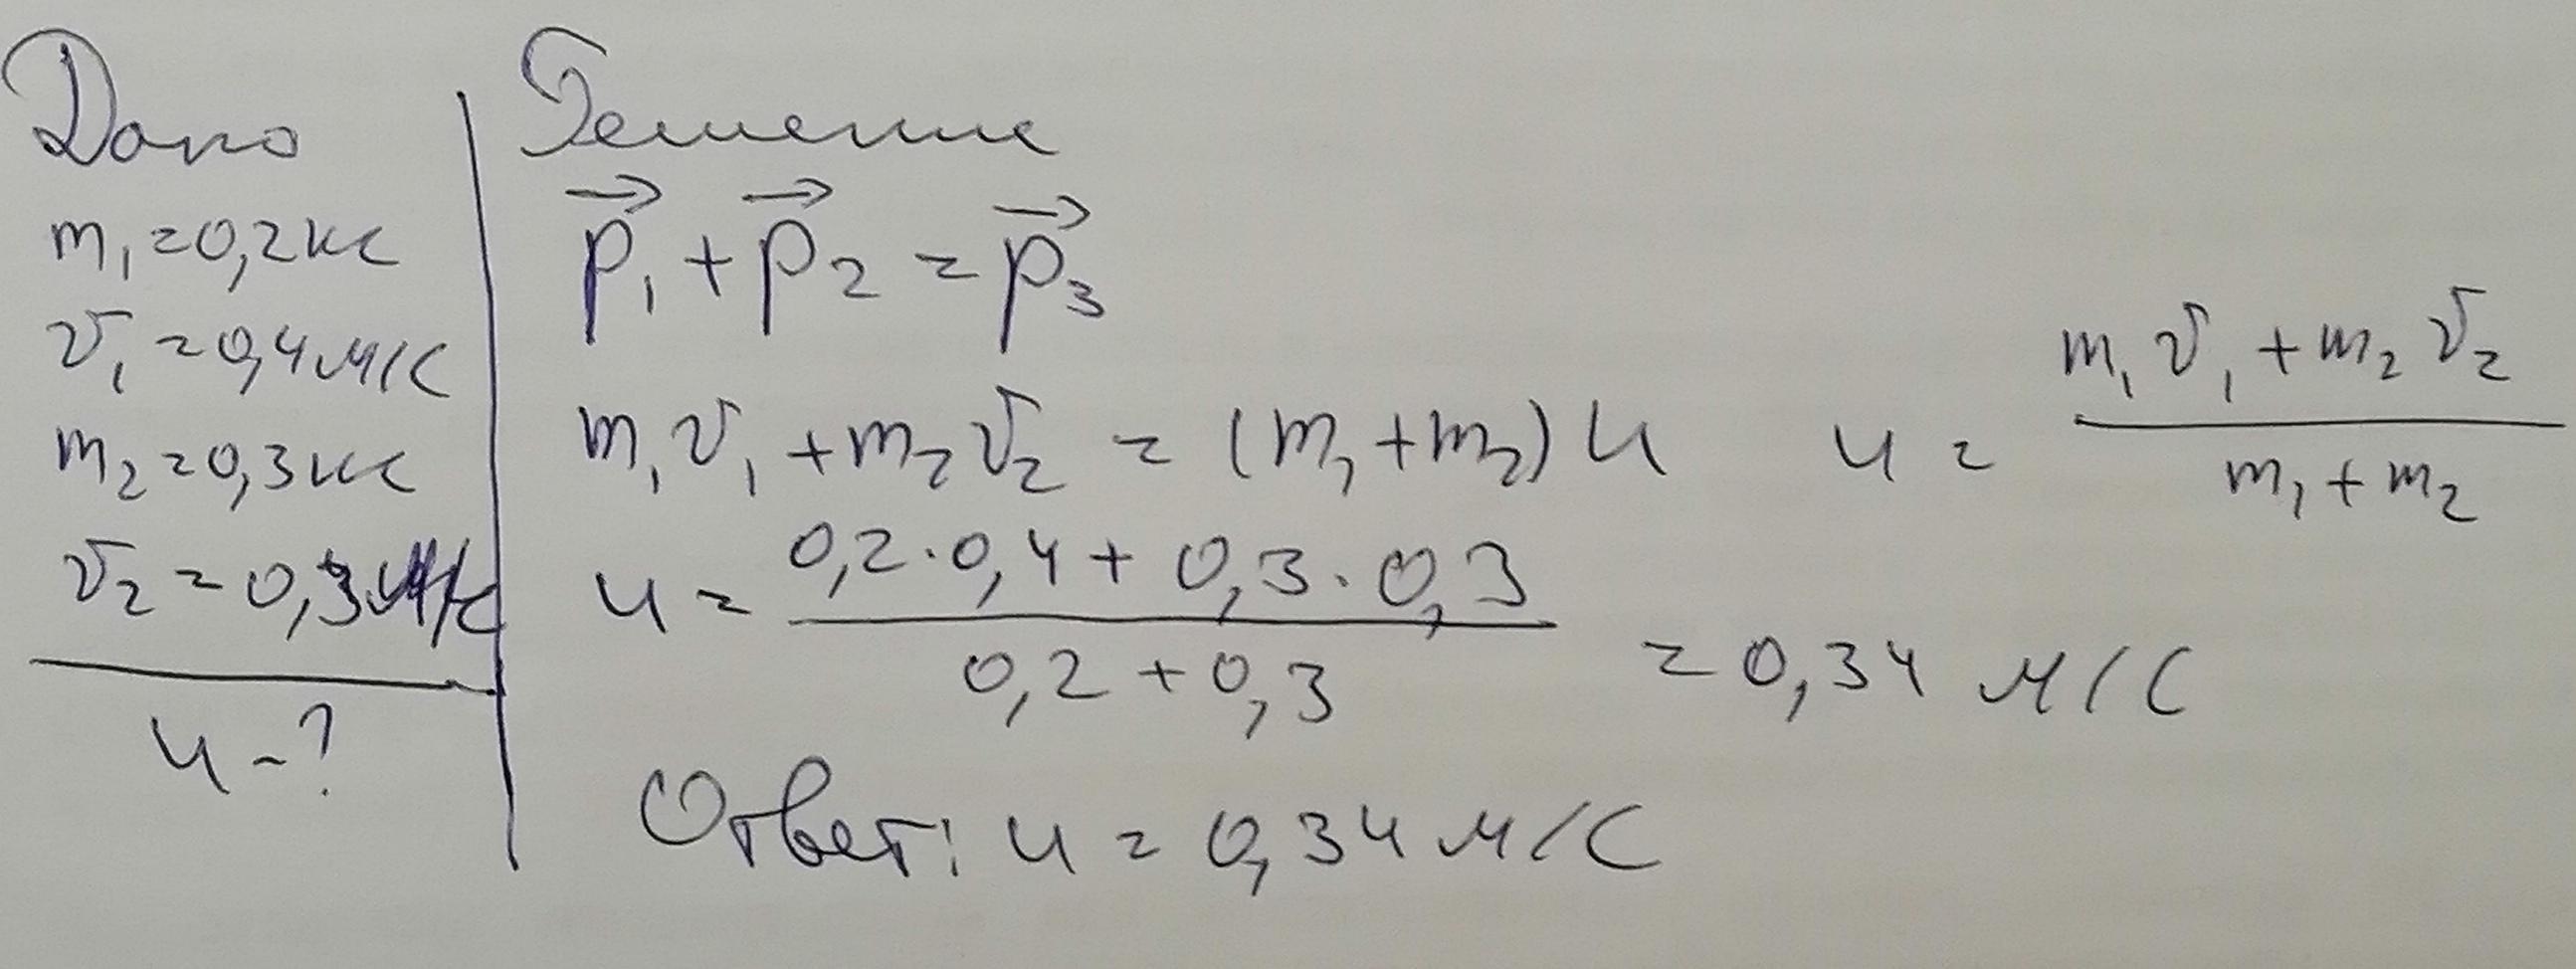 Дано
m₁=0,2кг
v₁=0,4м/с
m₂=0,3кг
v₂=0,3м/с
u-?
Решение
p⃗₁+p⃗₂=p⃗₃
m₁v₁+m₂v₂=(m₁+m₂)u u=(m₁v₁+m₂v₂)/(m₁+m₂)
u=(0,2·0,4+0,3·0,3)/(0,2+0,3)=0,34 м/с
Ответ: u=0,34м/с